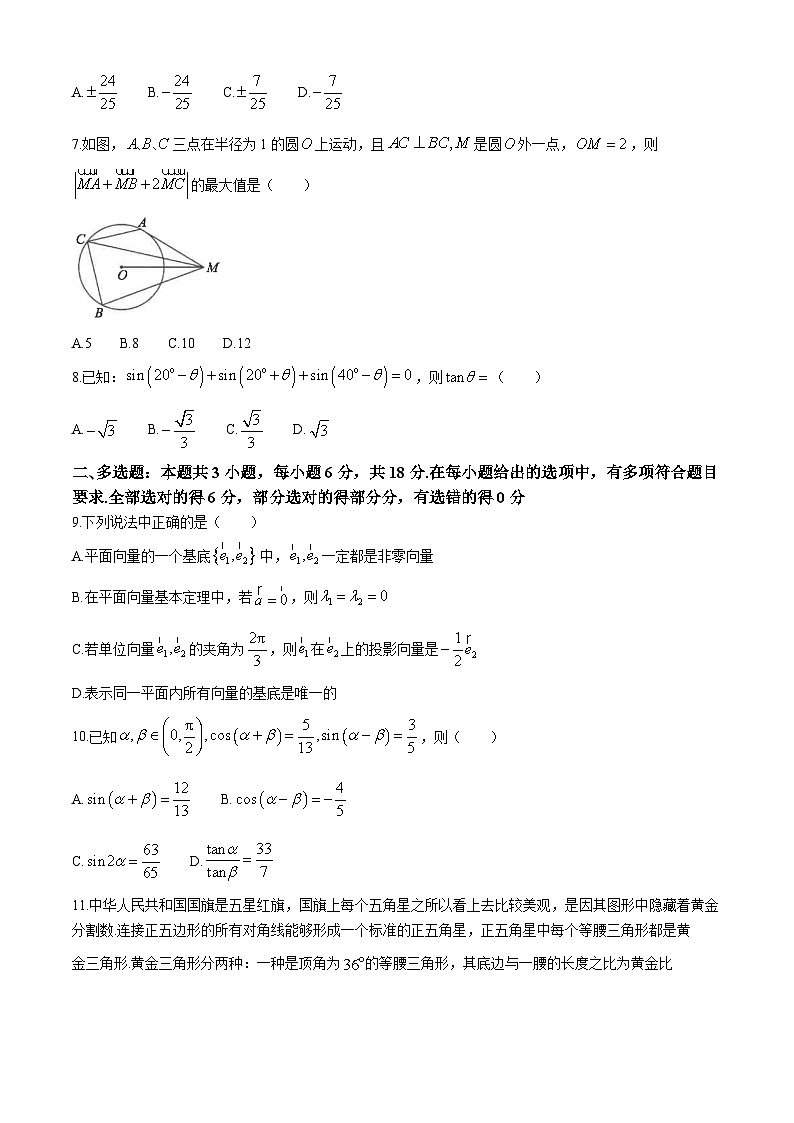 A. ±24/25 B. −24/25 C. ±7/25 D. −7/25
7.如图，A、B、C三点在半径为1的圆O上运动，且AC⊥BC, M是圆O外一点，OM=2，则
|MA+MB+2MC|的最大值是（ ）
A
C
O
M
B
A.5 B.8 C.10 D.12
8.已知：sin(20°−θ)+sin(20°+θ)+sin(40°−θ)=0，则tanθ=（ ）
A. −√3 B. −√3/3 C. √3/3 D. √3
二、多选题：本题共3小题，每小题6分，共18分.在每小题给出的选项中，有多项符合题目
要求.全部选对的得6分，部分选对的得部分分，有选错的得0分
9.下列说法中正确的是（ ）
A.平面向量的一个基底{e₁,e₂}中，e₁,e₂一定都是非零向量
B.在平面向量基本定理中，若a=0，则λ₁=λ₂=0
C.若单位向量e₁,e₂的夹角为2π/3，则e₁在e₂上的投影向量是−1/2 e₂
D.表示同一平面内所有向量的基底是唯一的
10.已知α,β∈(0,π/2),cos(α+β)=5/13,sin(α−β)=3/5，则（ ）
A. sin(α+β)=12/13 B. cos(α−β)=−4/5
C. sin2α=63/65 D. tanα/tanβ=33/7
11.中华人民共和国国旗是五星红旗，国旗上每个五角星之所以看上去比较美观，是因其图形中隐藏着黄金
分割数.连接正五边形的所有对角线能够形成一个标准的正五角星，正五角星中每个等腰三角形都是黄
金三角形.黄金三角形分两种：一种是顶角为36°的等腰三角形，其底边与一腰的长度之比为黄金比